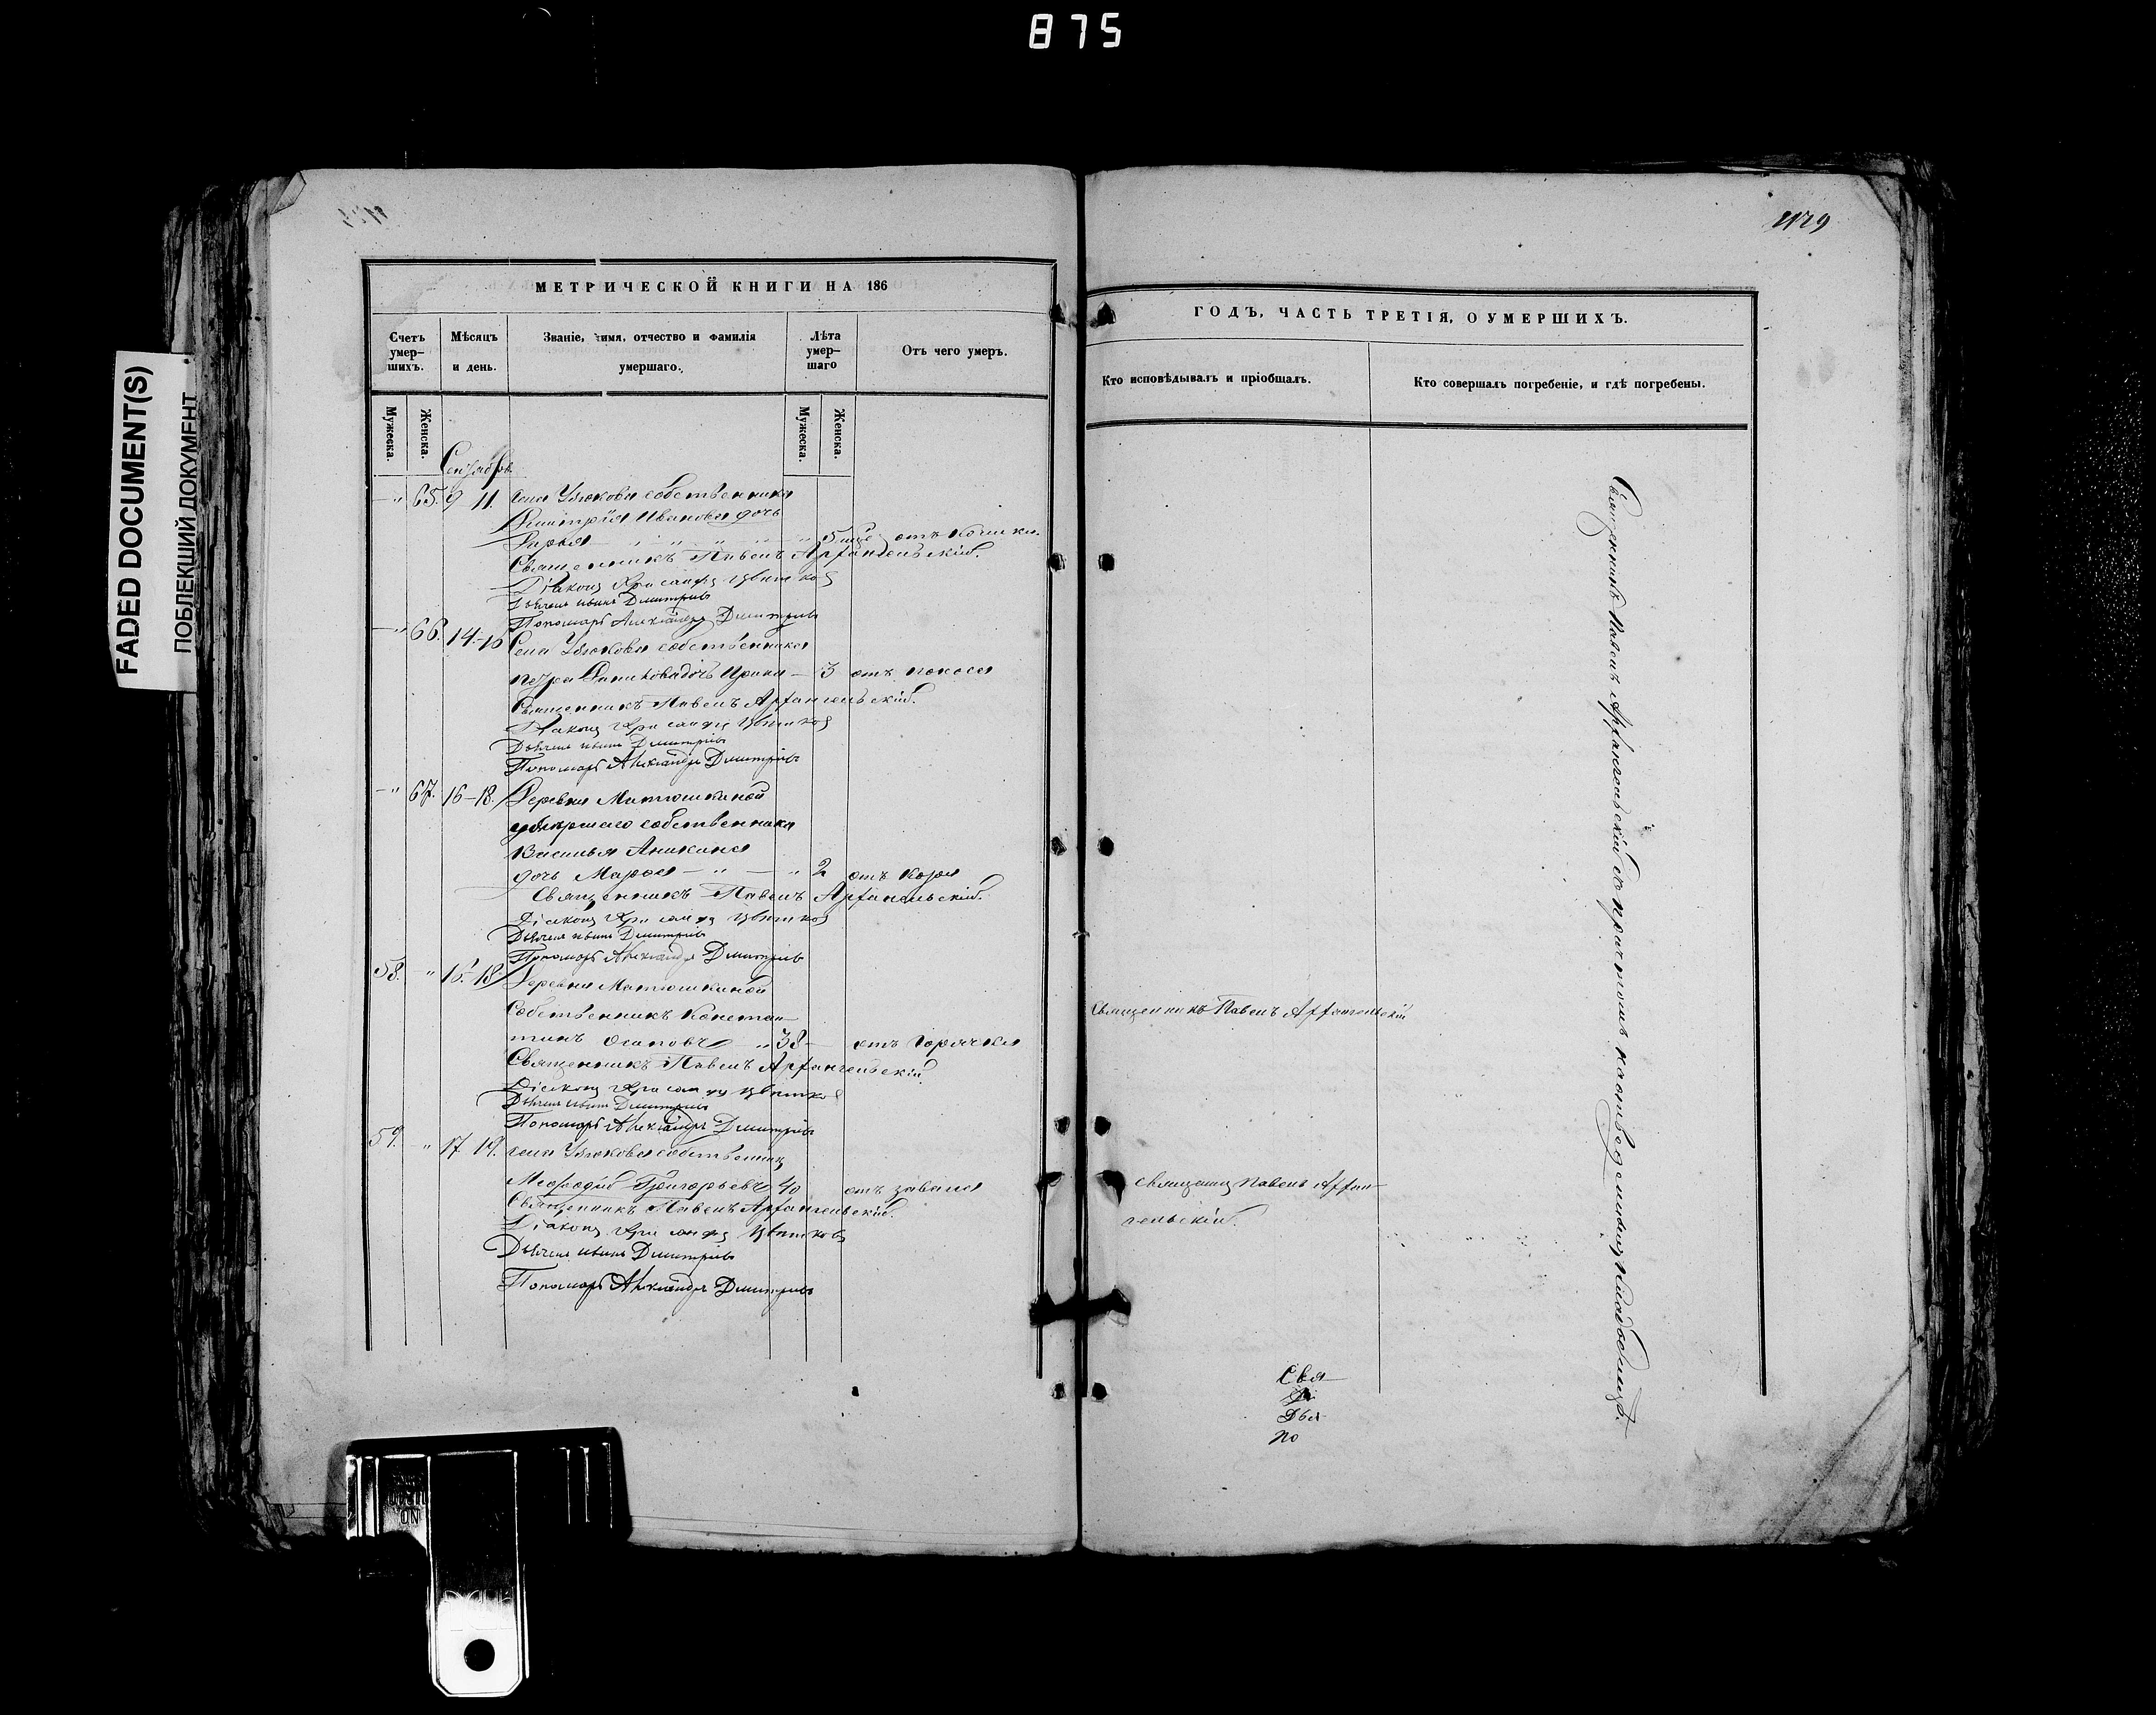 875
FADED DOCUMENT(S)
ПОБЛЕКШИЙ ДОКУМЕНТ
МЕТРИЧЕСКОЙ КНИГИ НА 186
Счетъ умер-шихъ.
Мѣсяцъ и день.
Званіе, имя, отчество и фамилія умершаго.
Лѣта умер-шаго
Отъ чего умеръ.
Мужеска.
Женска.
Мужеска.
Женска.
Сентябрь
" 65. 9 11. села Собственника
Димитрія Иванова дочь
Дарья " 5 отъ
Священникъ Павелъ Архангельскій.
Діаконъ Хрисанфъ Цвѣтковъ
Дьячекъ Иванъ Дмитріевъ
Пономарь Александръ Дмитріевъ
" 66. 14-16 Села собственника
Петра дочь Ирина — 3 отъ поноса
Священникъ Павелъ Архангельскій.
Діаконъ Хрисанфъ Цвѣтковъ
Дьячекъ Иванъ Дмитріевъ
Пономарь Александръ Дмитріевъ
" 67. 16-18. Деревни Матюшкиной
умершаго собственника
Василья Аникина
дочь Марья — " — " 2 отъ кори
Священникъ Павелъ Архангельскій.
Діаконъ Хрисанфъ Цвѣтковъ
Дьячекъ Иванъ Дмитріевъ
Пономарь Александръ Дмитріевъ
58. " 16. 18 Деревни Матюшкиной
Собственникъ Констан-
тинъ Осиповъ " 38 — отъ горячки
Священникъ Павелъ Архангельскій
Діаконъ Хрисанфъ Цвѣтковъ
Дьячекъ Иванъ Дмитріевъ
Пономарь Александръ Дмитріевъ
59. " 17 19. села собственникъ
Меѳодій Григорьевъ 40 отъ
Священникъ Павелъ Архангельскій.
Діаконъ Хрисанфъ Цвѣтковъ
Дьячекъ Иванъ Дмитріевъ
Пономарь Александръ Дмитріевъ
ГОДЪ, ЧАСТЬ ТРЕТІЯ, О УМЕРШИХЪ.
Кто исповѣдывалъ и пріобщалъ.
Кто совершалъ погребеніе, и гдѣ погребены.
Священникъ Павелъ Архангельскій
Священникъ Павелъ Архан-
гельскій.
Священникъ Павелъ Архангельскій съ причтомъ на отведенномъ кладбищѣ.
Свя
Ді
Дья
По